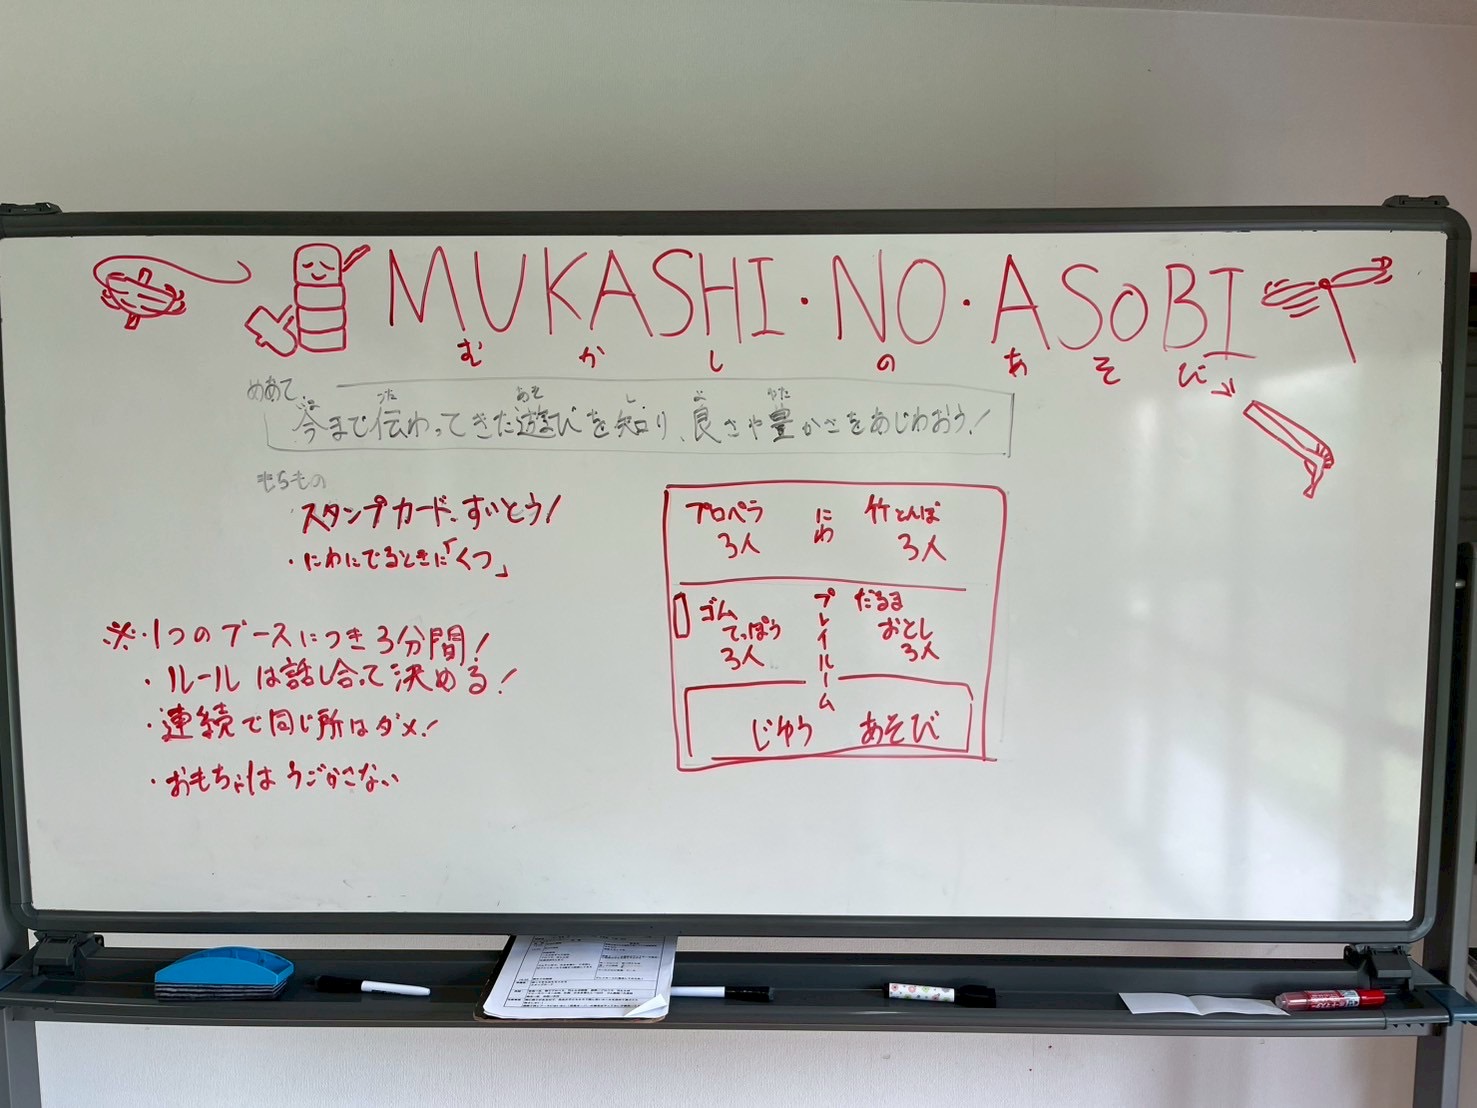 MUKASHI・NO・ASOBI
むかしのあそび
めあて
今まで伝わってきた遊びを知り、良さや豊かさをあじわおう!
いま つた あそ し よ ゆた
もちもの
スタンプカード、すいとう!
・にわにでるときに「くつ」
※・1つのブースにつき3分間!
・ルールは話し合って決める!
・連続で同じ所はダメ!
・おもちゃはうごかさない
プロペラ
3人
にわ
竹とんぼ
3人
ゴム
てっぽう
3人
プレイルーム
だるま
おとし
3人
じゆう あそび